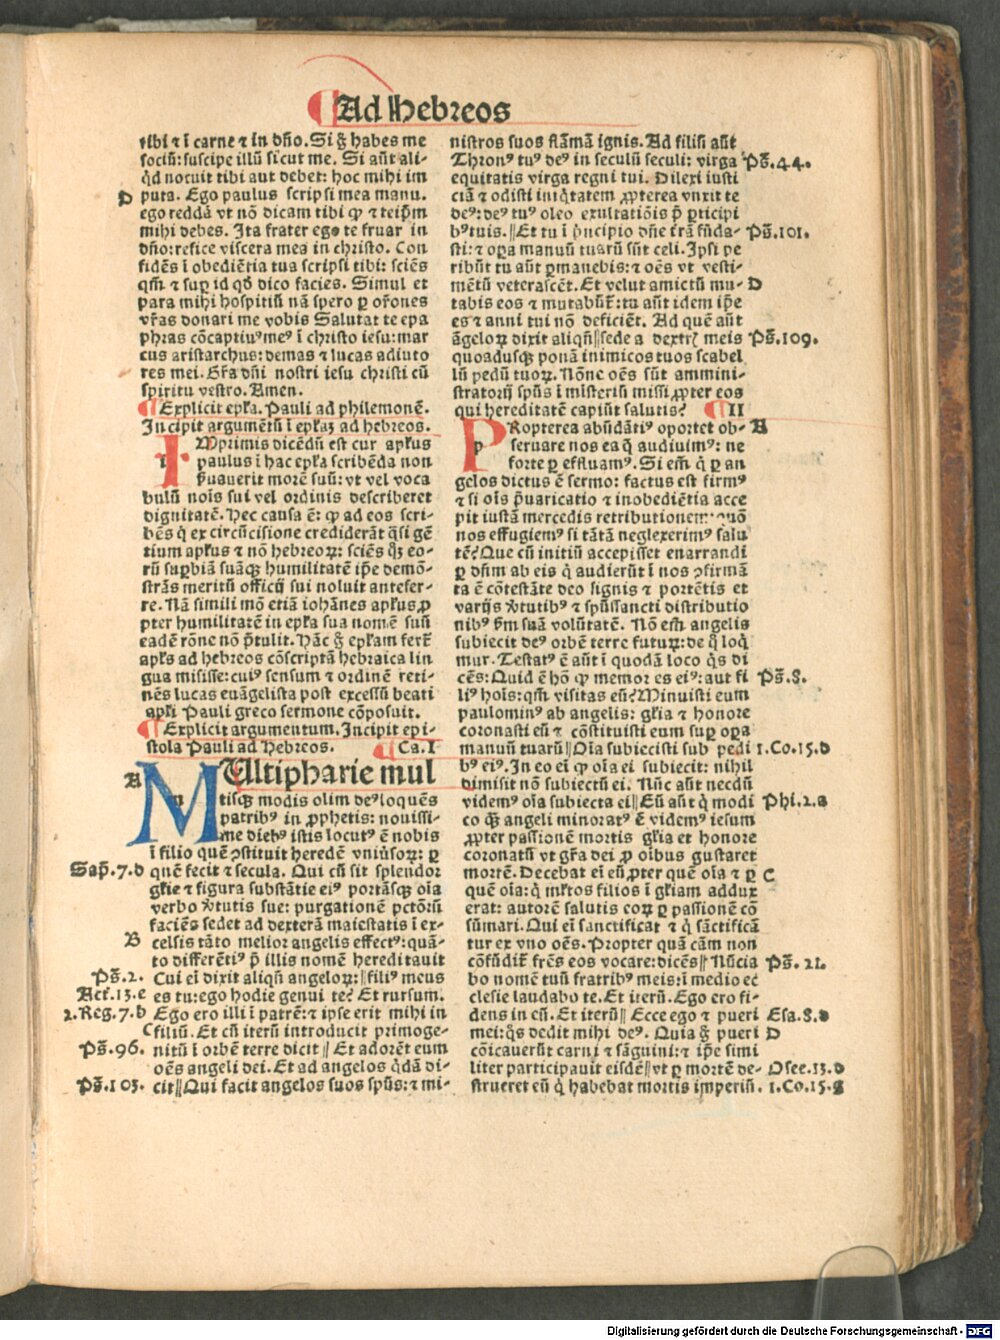 Ad Hebreos
tibi ⁊ ī carne ⁊ in dño. Si g̃ habes me
sociū: suscipe illū sicut me. Si aūt ali-
q̇d nocuit tibi aut debet: hoc mihi im
D puta. Ego paulus scripsi mea manu.
ego reddā vt nō dicam tibi ꝙ ⁊ teip̄m
mihi debes. Ita frater ego te fruar in
dño: refice viscera mea in christo. Con
fidēs ī obediētia tua scripsi tibi: sciēs
qm̄ ⁊ suꝑ id qḋ dico facies. Simul et
para mihi hospitiū nā spero ꝑ or̄ones
vr̄as donari me vobis Salutat te epa
phras cōcaptiuꝰ meꝰ ī christo iesu: mar
cus aristarchus: demas ⁊ lucas adiuto
res mei. Gr̄a dn̄i nostri iesu christi cū
spiritu vestro. Amen.
Explicit epl̄a. Pauli ad philemonē.
Incipit argumētū ī epl̄aꝫ ad hebreos.
IMprimis dicēdū est cur apl̄us
paulus ī hac epl̄a scribēda non
p̄uauerit morē suū: vt vel voca
bulū noīs sui vel ordinis describeret
dignitatē. Hec causa ē: ꝙ ad eos scri-
bēs q̇ ex circūcisione crediderāt q̇si gē
tium apl̄us ⁊ nō hebreoꝝ: sciēs qꝫ eo-
rū suꝑbiā suāqꝫ humilitatē ip̄e demō-
strās meritū officij sui noluit antefer-
re. Nā simili mō etiā iohānes apl̄us ꝓ
pter humilitatē in epl̄a sua nomē suū
eadē rōne nō p̄tulit. Hāc g̃ epl̄am fert̄
apl̄s ad hebreos cōscriptā hebraica lin
gua misisse: cuiꝰ sensum ⁊ ordinē reti-
nēs lucas euāgelista post excessū beati
apl̄i Pauli greco sermone cōposuit.
Explicit argumentum. Incipit epi-
stola Pauli ad Hebreos. Ca. I
A MUltipharie mul
tisqꝫ modis olim deꝰ loquēs
patribꝰ in ꝓphetis: nouissi-
me diebꝰ istis locutꝰ ē nobis
ī filio quē ꝯstituit heredē vniūsoꝝ: ꝑ
Sap̄.7.d quē fecit ⁊ secula. Qui cū sit splendor
gl̄ie ⁊ figura substātie eiꝰ portāsqꝫ oīa
verbo v̄tutis sue: purgationē pctōrū
faciēs sedet ad dexterā maiestatis ī ex-
B celsis tāto melior angelis effectꝰ: quā-
to differētiꝰ p̄ illis nomē hereditauit
Ps̄.2. Cui eī dixit aliqn̄ angeloꝝ: filiꝰ meus
Act̄.13.e es tu: ego hodie genui te? Et rursum.
2.Reg.7.b Ego ero illi ī patrē: ⁊ ipse erit mihi in
C filiū. Et cū iterū introducit primoge-
Ps̄.96. nitū ī orbē terre dicit Et adorēt eum
oēs angeli dei. Et ad angelos q̇dā di-
Ps̄.103. cit Qui facit angelos suos spūs: ⁊ mi-
nistros suos flāmā ignis. Ad filiū aūt
Thronꝰ tuꝰ deꝰ in seculū seculi: virga Ps̄.44.
equitatis virga regni tui. Dilexi iusti
ciā ⁊ odisti iniq̇tatem ꝓpterea vnxit te
deꝰ: deꝰ tuꝰ oleo exultatiōis p̄ ꝑticipi
bꝰ tuis. Et tu ī p̄ncipio dn̄e trā fūda- Ps̄.101.
sti: ⁊ oꝑa manuū tuarū sūt celi. Ipsi pe
ribūt tu aūt ꝑmanebis: ⁊ oēs vt vesti-
mētū veterascēt. Et velut amictū mu- D
tabis eos ⁊ mutabūt̄: tu aūt idem ip̄e
es ⁊ anni tui nō deficiēt. Ad quē aūt
āgeloꝝ dixit aliqn̄ sede a dextrꝭ meis Ps̄.109.
quoadusqꝫ ponā inimicos tuos scabel
lū pedū tuoꝝ. Nōne oēs sūt ammini-
stratorij spūs ī misteriū missi ꝓpter eos
qui hereditatē capiūt salutis? II
PRopterea abūdātiꝰ oportet ob- A
seruare nos ea q̇ audiuimꝰ: ne
forte ꝑ effluamꝰ. Si em̄ q̇ ꝑ an
gelos dictus ē sermo: factus est firmꝰ
⁊ si oīs p̄uaricatio ⁊ inobediētia acce
pit iustā mercedis retributionem: quō
nos effugiemꝰ si tātā neglexerimꝰ salu
tē? Que cū initiū accepisset enarrandi
ꝑ dn̄m ab eis q̇ audierūt ī nos ꝯfirmā
ta ē cōtestāte deo signis ⁊ portētis et
varijs v̄tutibꝰ ⁊ spūssancti distributio
nibꝰ s̄m suā volūtatē. Nō em̄ angelis
subiecit deꝰ orbē terre futurꝝ: de q̇ loq̇
mur. Testatꝰ ē aūt ī quodā loco q̇s di
cēs: Quid ē hō ꝙ memor es eiꝰ: aut fi Ps̄.8.
liꝰ hoīs: qm̄ visitas eū? Minuisti eum
paulominꝰ ab angelis: gl̄ia ⁊ honore
coronasti eū ⁊ cōstituisti eum suꝑ oꝑa
manuū tuarū Oīa subiecisti sub pedi 1.Co.15.d
bꝰ eiꝰ. In eo eī ꝙ oīa ei subiecit: nihil
dimisit nō subiectū ei. Nūc aūt necdū
videmꝰ oīa subiecta ei Eū aūt q̇ modi Phi.2.a
co qꝫ angeli minoratꝰ ē videmꝰ iesum
ꝓpter passionē mortis gl̄ia et honore
coronatū vt gr̄a dei ꝓ oībus gustaret
mortē. Decebat eī eū ꝓpter quē oīa ⁊ ꝑ C
quē oīa: q̇ ml̄tos filios ī gl̄iam addux
erat: autorē salutis eoꝝ ꝑ passionē cō
sūmari. Qui eī sanctificat ⁊ q̇ sāctificā
tur ex vno oēs. Propter quā cām non
cōfūdit̄ fr̄es eos vocare: dicēs Nūcia Ps̄. 21.
bo nomē tuū fratribꝰ meis: ī medio ec
clesie laudabo te. Et iterū. Ego ero fi-
dens in eū. Et iterū Ecce ego ⁊ pueri Esa.8.d
mei: q̇s dedit mihi deꝰ. Quia g̃ pueri D
cōicauerūt carni ⁊ sāguini: ⁊ ip̄e simi
liter participauit eisdē vt ꝑ mortē de- Osee.13.d
strueret eū q̇ habebat mortis imperiū. 1.Co.15.g
Digitalisierung gefördert durch die Deutsche Forschungsgemeinschaft - DFG